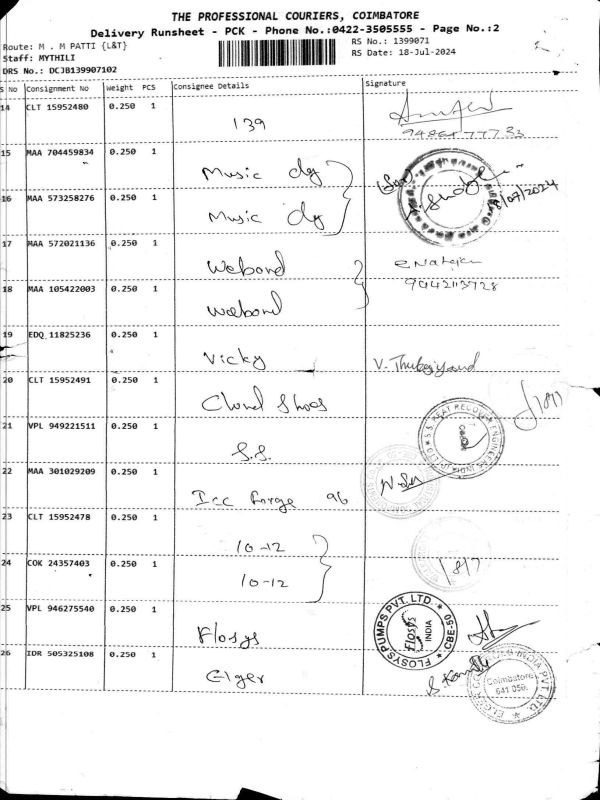 THE PROFESSIONAL COURIERS, COIMBATORE
Delivery Runsheet - PCK - Phone No.:0422-3505555 - Page No.:2
Route: M . M PATTI {L&T}
RS No.: 1399071
Staff: MYTHILI
RS Date: 18-Jul-2024
DRS No.: DCJB139907102
S No Consignment No Weight PCS Consignee Details Signature
14 CLT 15952480 0.250 1 139
15 MAA 704459834 0.250 1 Music dg
16 MAA 573258276 0.250 1 Music dg
8/07/2024
17 MAA 572021136 0.250 1 Webond
18 MAA 105422003 0.250 1 Webond
19 EDQ 11825236 0.250 1 Vicky
20 CLT 15952491 0.250 1 Shoes
21 VPL 949221511 0.250 1 S.S.
S.S. HEAT RECOVER ENGINEERS INDIA (P) LTD
22 MAA 301029209 0.250 1 Icc forge 96
23 CLT 15952478 0.250 1 10-12
24 COK 24357403 0.250 1 10-12
18/7
25 VPL 946275540 0.250 1 Flosys
FLOSYS PUMPS PVT. LTD. CBE-50
Flosys
INDIA
26 IDR 505325108 0.250 1 Elger
INDIA PVT. LTD.
Coimbatore
641 050.